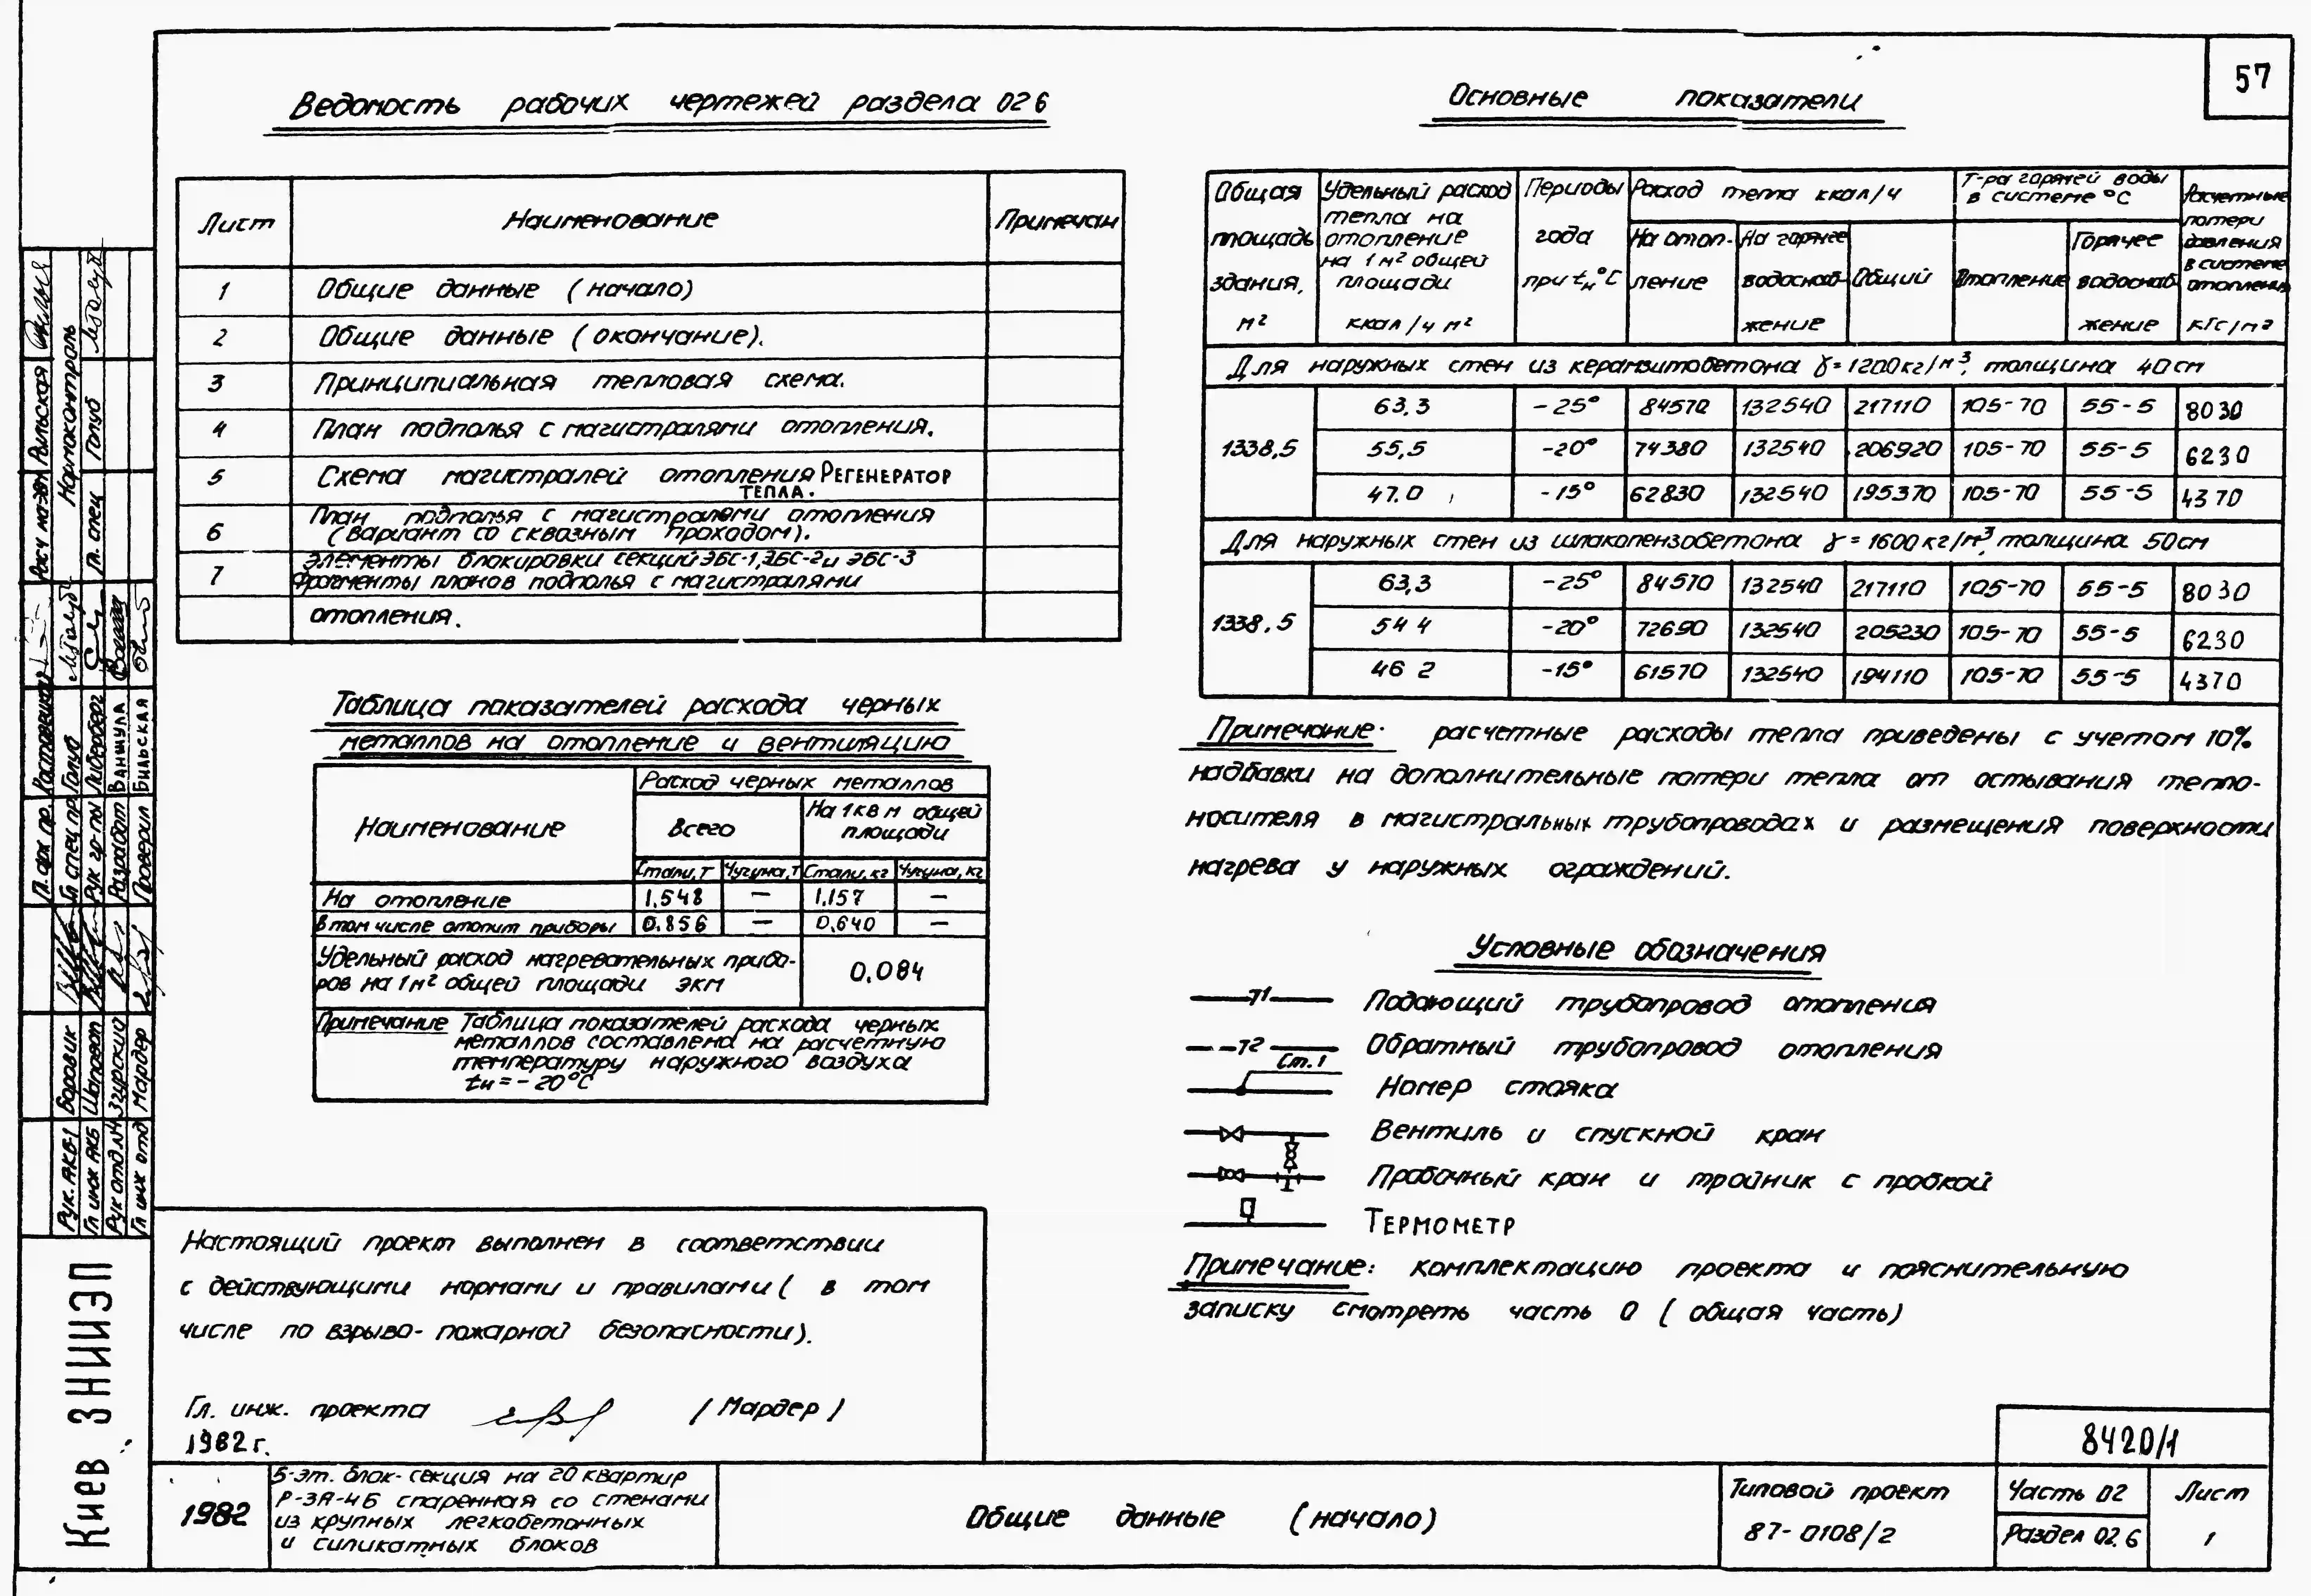 57
Ведомость рабочих чертежей раздела 02 6
Лист Наименование Примечан
1 Общие данные (начало)
2 Общие данные (окончание).
3 Принципиальная тепловая схема.
4 План подполья с магистралями отопления.
5 Схема магистралей отопления Регенератор
тепла.
6 План подполья с магистралями отопления
(вариант со сквозным проходом).
7 Элементы блокировки секций ЭБС-1, ЭБС-2 и ЭБС-3
Фрагменты планов подполья с магистралями
отопления.
Таблица показателей расхода черных
металлов на отопление и вентиляцию
Наименование
Расход черных металлов
Всего
На 1 кв м общей
площади
Стали, т Чугуна, т Стали, кг Чугуна, кг
На отопление 1.548 — 1.157 —
В том числе отопит приборы 0.856 — 0.640 —
Удельный расход нагревательных прибо-
ров на 1 м² общей площади экм 0.084
Примечание Таблица показателей расхода черных
металлов составлена на расчетную
температуру наружного воздуха
tн = - 20°С
Настоящий проект выполнен в соответствии
с действующими нормами и правилами ( в том
числе по взрыво- пожарной безопасности).
Гл. инж. проекта (Мардер)
1982 г.
Основные показатели
Общая площадь здания, м²
Удельный расход тепла на отопление на 1 м² общей площади ккал/ч м²
Периоды года при tн °С
Расход тепла ккал/ч
На отоп-ление
На горячее водоснаб-жение
Общий
Т-ра горячей воды в системе °С
Отопление
Горячее водоснаб-жение
Расчетные потери давления в системе отопления кгс/м²
Для наружных стен из керамзитобетона γ = 1200 кг/м³, толщина 40 см
1338,5
63,3 -25° 84570 132540 217110 105-70 55-5 8030
55,5 -20° 74380 132540 206920 105-70 55-5 6230
47.0 -15° 62830 132540 195370 105-70 55-5 4370
Для наружных стен из шлакопензобетона γ = 1600 кг/м³, толщина 50 см
1338.5
63,3 -25° 84570 132540 217110 105-70 55-5 8030
54 4 -20° 72690 132540 205230 105-70 55-5 6230
46 2 -15° 61570 132540 194110 105-70 55-5 4370
Примечание: расчетные расходы тепла приведены с учетом 10%
надбавки на дополнительные потери тепла от остывания тепло-
носителя в магистральных трубопроводах и размещения поверхности
нагрева у наружных ограждений.
Условные обозначения
Т1 Подающий трубопровод отопления
Т2 Обратный трубопровод отопления
Ст.1 Номер стояка
Вентиль и спускной кран
Пробочный кран и тройник с пробкой
Термометр
Примечание: комплектацию проекта и пояснительную
записку смотреть часть 0 ( общая часть)
8420/1
1982
5-эт. блок-секция на 20 квартир
Р-3А-4Б спаренная со стенами
из крупных легкобетонных
и силикатных блоков
Общие данные (начало)
Типовой проект
87-0108/2
Часть 02
Раздел 02.6
Лист
1
Киев ЗНИИЭП
Рук. АКБ-1 Боровик
Гл инж АКБ Шаповал
Рук отд Згурский
Гл инж отд Мардер
Гл. арх пр.
Гл спец пр Голуб
Рук гр-пы Лидерберг
Разработ Ваншула
Проверил Бильская
Рильская
Нормоконтроль
Гл. спец Голуб